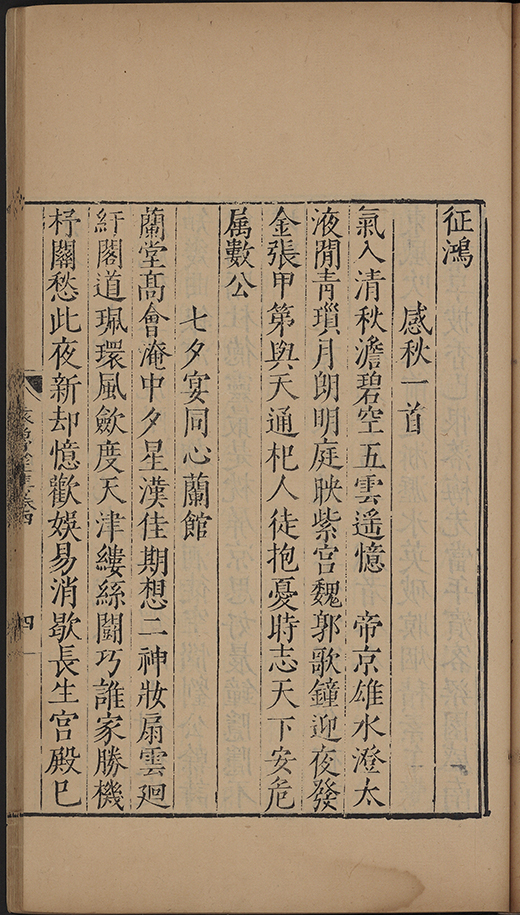 征鴻
感秋一首
氣入清秋澹碧空五雲遥憶　帝京雄水澄太
液閒青瑣月朗明庭映紫宫魏郭歌鐘迎夜發
金張甲第與天通杞人徒抱憂時志天下安危
属數公
七夕宴同心蘭館
蘭堂髙會淹中夕星漢佳期想二神妝扇雲廻
紆閣道珮環風歛度天津縷絲鬭巧誰家勝機
杼關愁此夜新却憶歡娛易消歇長生宫殿已
卷四
四